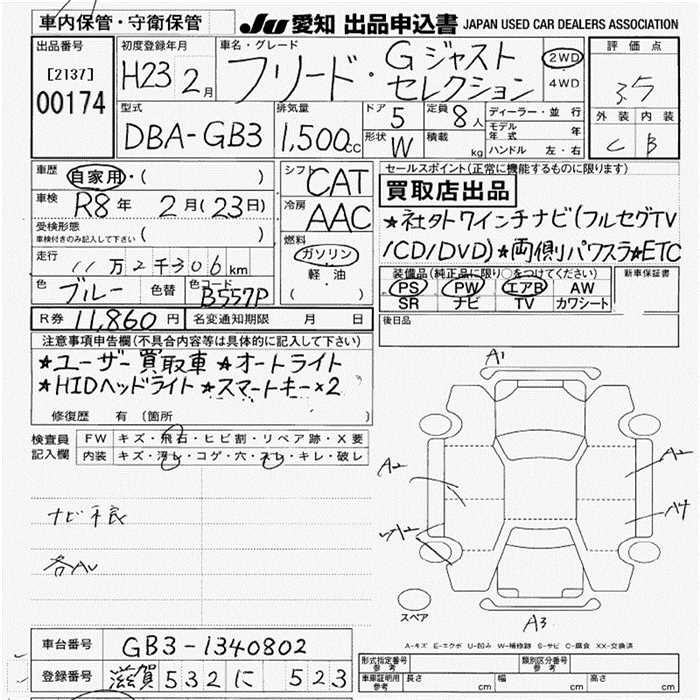 車内保管・守衛保管
JU 愛知 出品申込書 JAPAN USED CAR DEALERS ASSOCIATION
出品番号
[2137]
00174
初度登録年月
H23 2月
車名・グレード
フリード・Gジャスト
セレクション
2WD
・
4WD
評価点
3.5
外装 内装
C B
型式
DBA-GB3
排気量
1,500cc
ドア 5
形状 W
定員 8人
積載 kg
ディーラー・並行
モデル年式 年
ハンドル 左・右
車歴
自家用・( )
車検 R8年 2月(23日)
受検形態
車検付きのみ記入して下さい ( )
走行 11万2千306km
色 ブルー 色替 色コード B557P
シフト CAT
冷房 AAC
燃料
ガソリン
・
軽油
( )
R券 11,860円 名変通知期限 月 日
セールスポイント(正常に機能するものに限ります)
買取店出品
★社外ワインチナビ(フルセグTV
/CD/DVD)★両側パワスラ★ETC
装備品(純正品に限り○をつけてください)
PS PW エアB AW
SR ナビ TV カワシート
新車保証書
後日品
注意事項申告欄(不具合内容等は具体的に記入して下さい)
★ユーザー買取車 ★オートライト
★HIDヘッドライト ★スマートキー×2
修復歴 有〔箇所
検査員
記入欄
FW キズ・飛石・ヒビ割・リペア跡・X要
内装 キズ・汚レ・コゲ・穴・スレ・キレ・破レ
ナビ不良
各AU
A1
A2
A2
A2
A4
A3
スペア
A-キズ E-エクボ U-凹み W-補修跡 S-サビ C-腐食 XX-交換済
車台番号 GB3-1340802
登録番号 滋賀 532 に 523
形式指定番号
参考
類別区分番号
参考
車庫証明用
参考
長さ cm 幅 cm 高さ cm